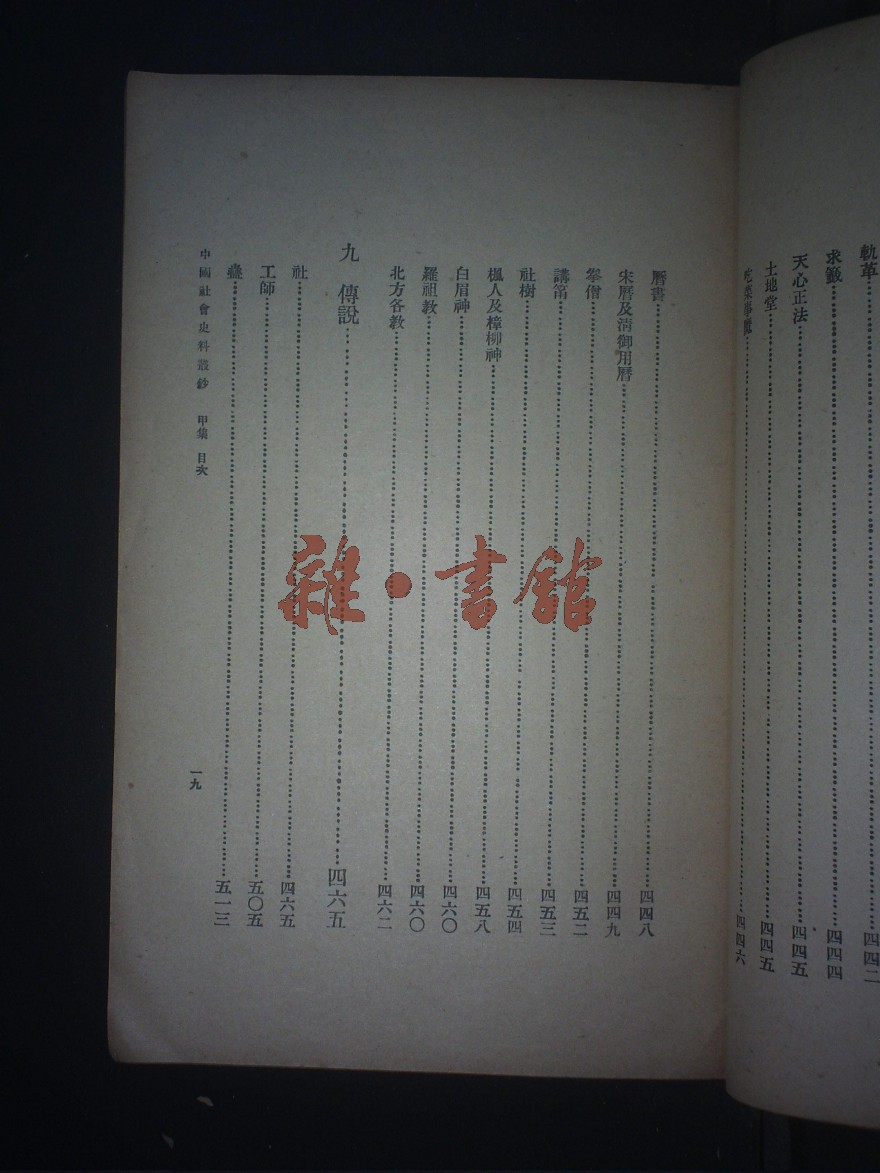 軌革……四四二
求籤……四四四
天心正法……四四五
土地堂……四四五
事魔……四四六
曆書……四四八
宋曆及清御用曆……四四九
拳僧……四五二
講帛……四五三
社樹……四五四
楓人及樟柳神……四五八
白眉神……四六〇
羅祖教……四六〇
北方各教……四六二
九 傳說……四六五
社……四六五
工師……五〇五
蠱……五一三
中國社會史料叢鈔 甲集 目次
一九
雜·書館